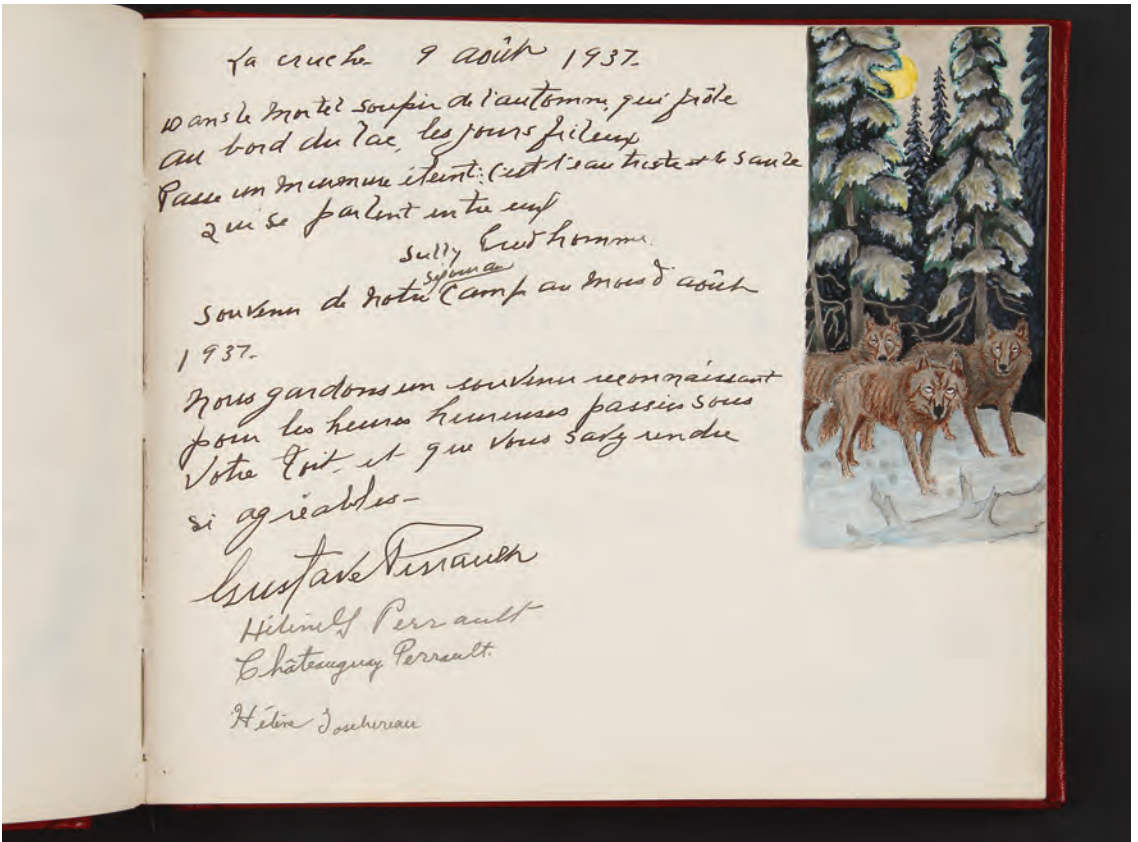 La cruche 9 août 1937.
Dans le mortel soupir de l'automne, qui frôle
au bord du lac, les joncs frileux
Passe un murmure éteint: c'est l'eau triste et le saule
qui se parlent entre eux
Sully Prudhomme.
séjour au
Souvenir de notre Camp au mois d'août
1937.
Nous gardons un souvenir reconnaissant
pour les heures heureuses passées sous
votre toit et que vous savez rendre
si agréables—
Gustave Perrault
Hélène Perrault
Châteauguay Perrault.
Hélène